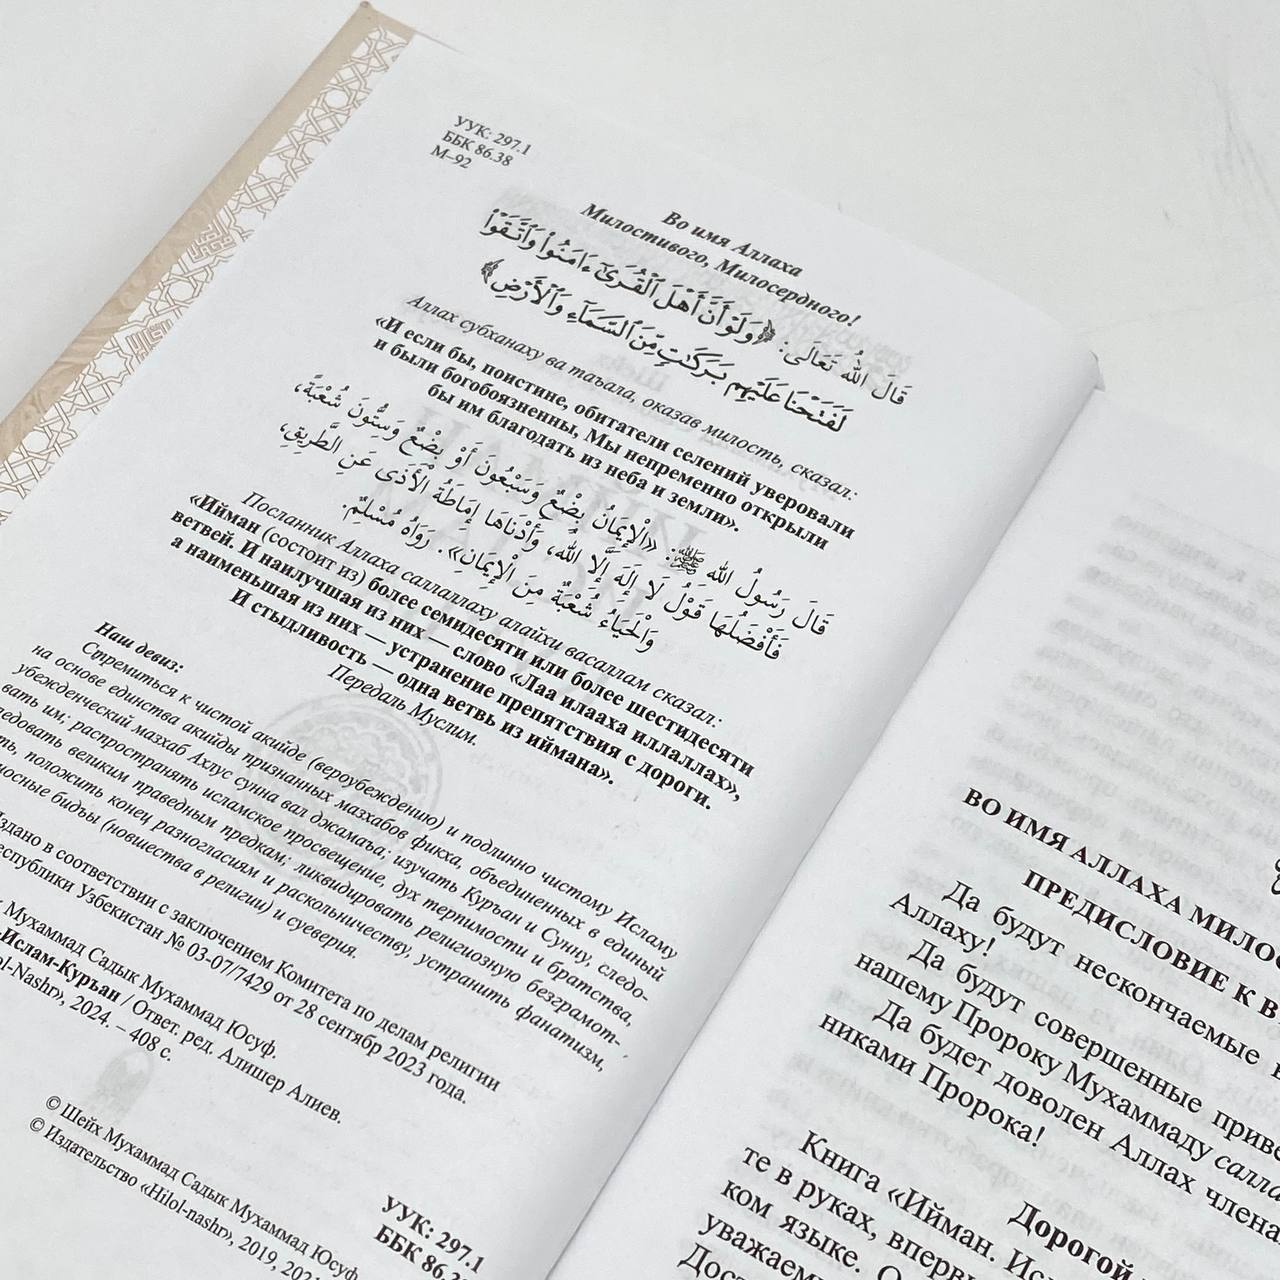 УУК: 297.1
ББК 86.38
М–92
Во имя Аллаха
Милостивого, Милосердного!
قَالَ اللهُ تَعَالَى: ﴿وَلَوْ أَنَّ أَهْلَ ٱلْقُرَىٰٓ ءَامَنُوا۟ وَٱتَّقَوْا۟
لَفَتَحْنَا عَلَيْهِم بَرَكَٰتٍ مِّنَ ٱلسَّمَآءِ وَٱلْأَرْضِ﴾
Аллах субханаху ва таъала, оказав милость, сказал:
«И если бы, поистине, обитатели селений уверовали
и были богобоязненны, Мы непременно открыли
бы им благодать из неба и земли».
قَالَ رَسُولُ اللهِ ﷺ: «الْإِيمَانُ بِضْعٌ وَسَبْعُونَ أَوْ بِضْعٌ وَسِتُّونَ شُعْبَةً،
فَأَفْضَلُهَا قَوْلُ لَا إِلَهَ إِلَّا اللهُ، وَأَدْنَاهَا إِمَاطَةُ الْأَذَى عَنِ الطَّرِيقِ،
وَالْحَيَاءُ شُعْبَةٌ مِنَ الْإِيمَانِ». رَوَاهُ مُسْلِمٌ.
Посланник Аллаха саллаллаху алайхи васаллам сказал:
«Ийман (состоит из) более семидесяти или более шестидесяти
ветвей. И наилучшая из них — слово «Лаа илааха иллаллах»,
а наименьшая из них — устранение препятствия с дороги.
И стыдливость — одна ветвь из иймана».
Передаль Муслим.
Наш девиз:
Стремиться к чистой акийде (вероубеждению) и подлинно чистому Исламу
на основе единства акийды признанных мазхабов фикха, объединенных в единый
убежденческий мазхаб Ахлус сунна вал джамаъа; изучать Куръан и Сунну, следо-
вать им; распространять исламское просвещение, дух терпимости и братства,
ледовать великим праведным предкам; ликвидировать религиозную безграмот-
ть, положить конец разногласиям и раскольничеству, устранить фанатизм,
носные бидъы (новшества в религии) и суеверия.
здано в соответствии с заключением Комитета по делам религии
еспублики Узбекистан № 03-07/7429 от 28 сентябр 2023 года.
х Мухаммад Садык Мухаммад Юсуф.
-Ислам-Куръан / Ответ. ред. Алишер Алиев.
ol-Nashr», 2024. – 408 с.
УУК: 297.1
ББК 86.38
© Шейх Мухаммад Садык Мухаммад Юсуф
© Издательство «Hilol-nashr», 2019, 202
ВО ИМЯ АЛЛАХА МИЛОС
ПРЕДИСЛОВИЕ К В
Да будут нескончаемые
Аллаху!
Да будут совершенные приве
нашему Пророку Мухаммаду салла
Да будет доволен Аллах члена
никами Пророка!
Дорогой
Книга «Ийман. Ис
те в руках, впервы
ком языке. О
уважаем
Дост